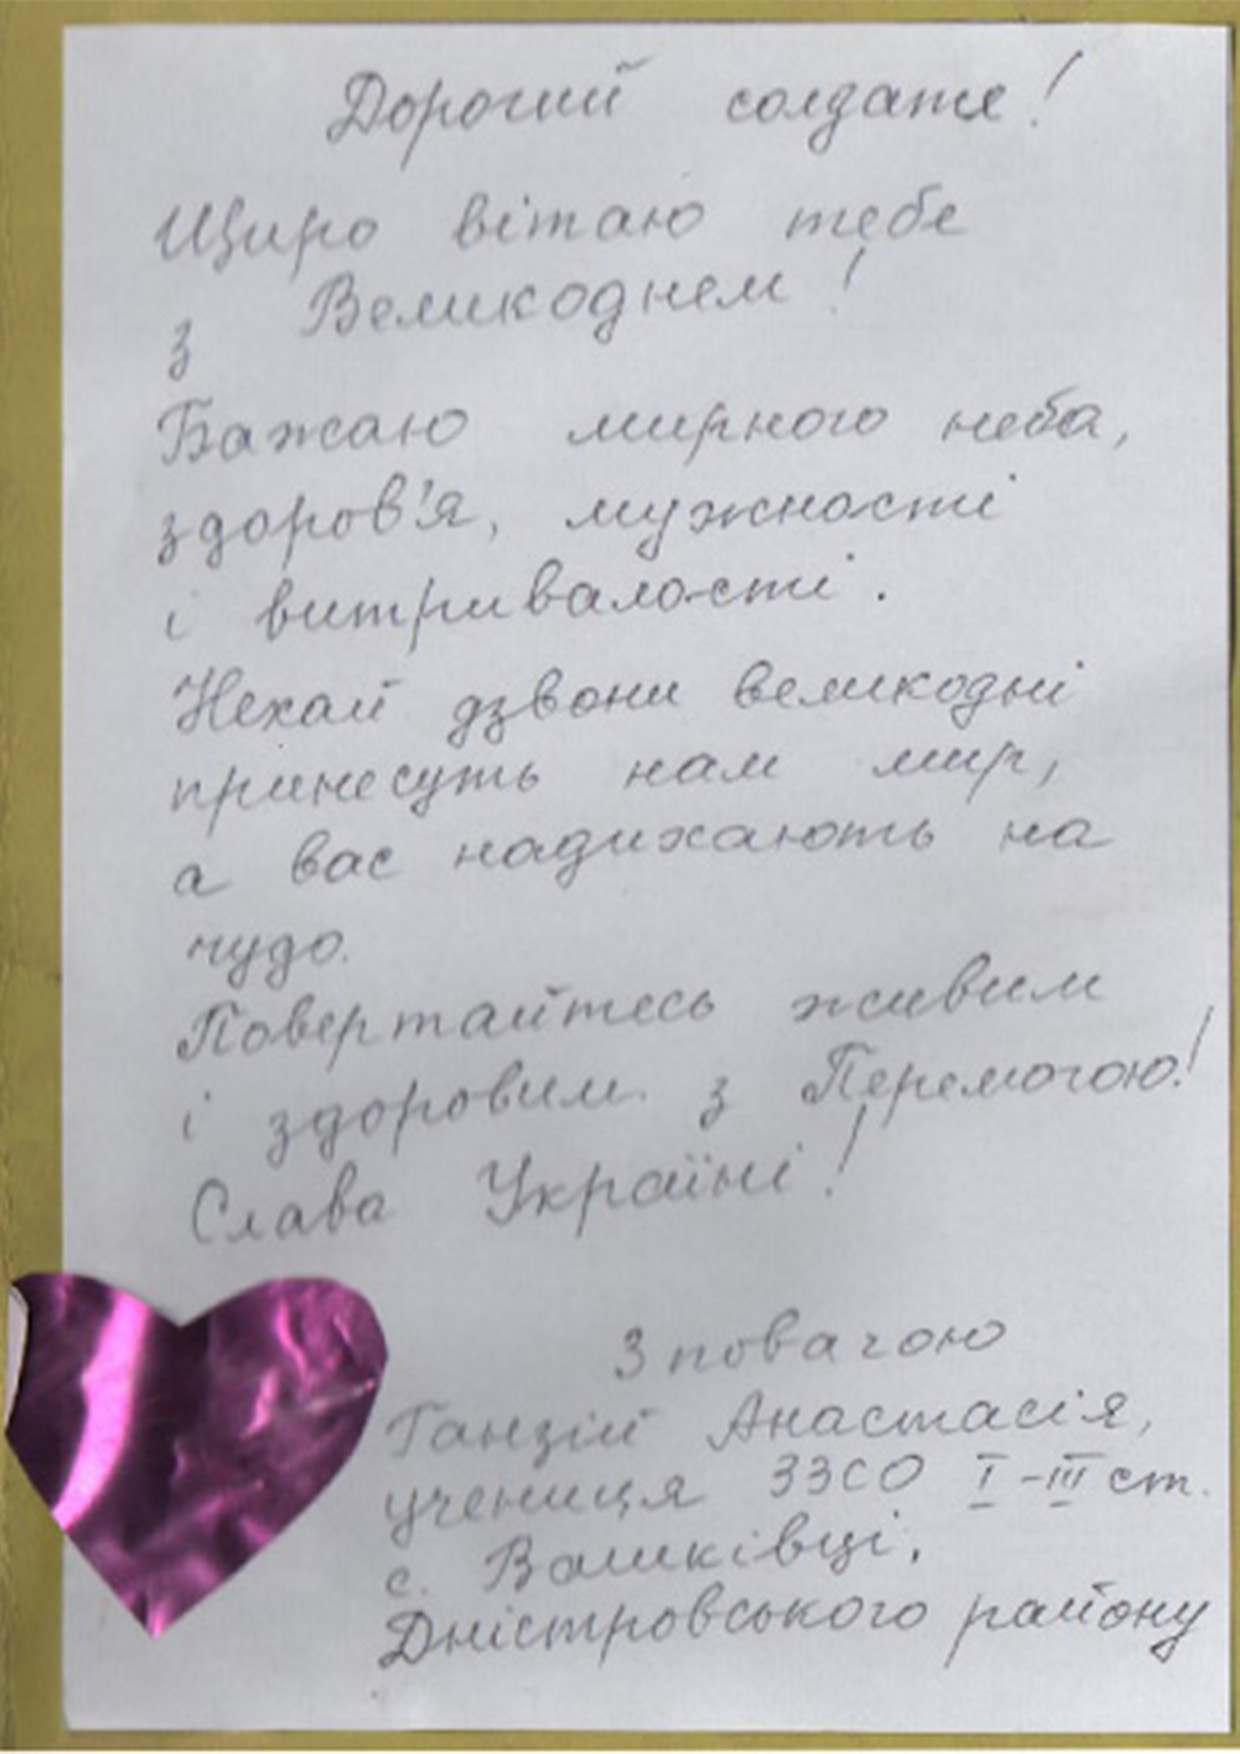 Дорогий солдате!
Щиро вітаю тебе
з Великоднем!
Бажаю мирного неба,
здоров'я, мужності
і витривалості.
Нехай дзвони великодні
принесуть нам мир,
а вас надихають на
чудо.
Повертайтесь живим
і здоровим з Перемогою!
Слава Україні!
З повагою
Ганзій Анастасія,
учениця ЗЗСО І-ІІІ ст.
с. Вашківці,
Дністровського району